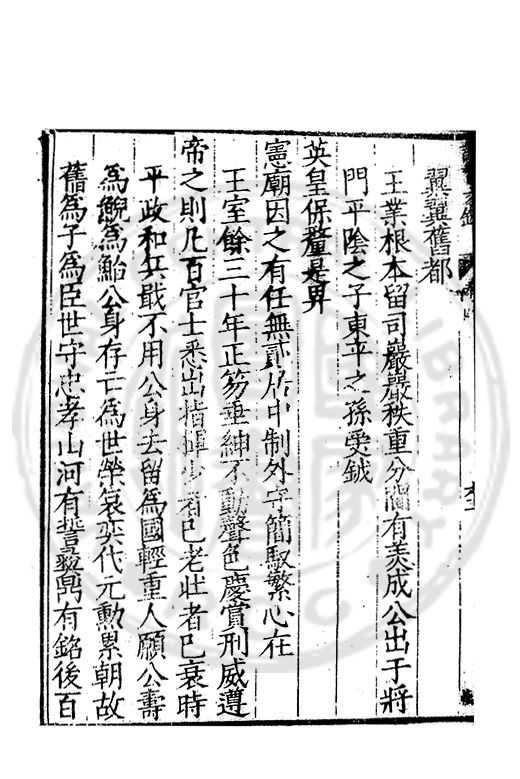 翼翼舊都
王業根本留司嚴嚴秩重分閫有美成公出于將
門平陰之子東平之孫受鉞
英皇保釐是畀
憲廟因之有任無貳居中制外守簡馭繁心在
王室餘三十年正笏垂紳不動聲色慶賞刑威遵
帝之則凡百官士悉出指揮少者已老壯者已衰時
平政和兵戢不用公身去留為國輕重人願公壽
為鯢為鮐公身存亡為世榮衰奕代元勳累朝故
舊為子為臣世守忠孝山河有誓彝鼎有銘後百